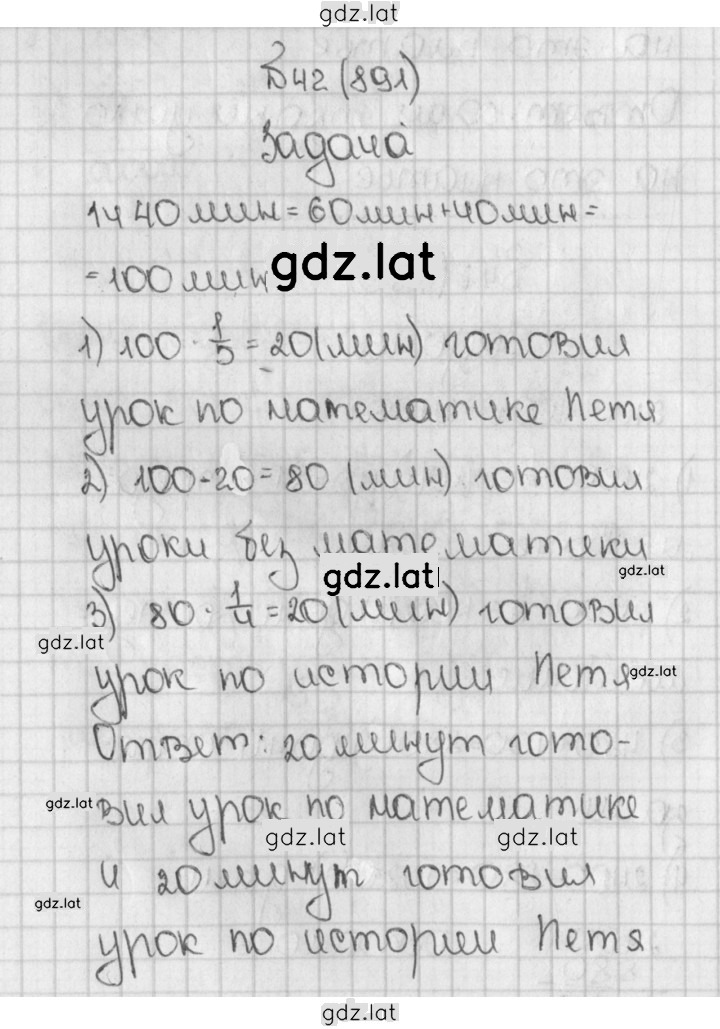 gdz.lat
№42 (891)
Задача
1ч 40мин=60мин+40мин=
=100мин
gdz.lat
1) 100 · 1/5 = 20(мин) готовил
урок по математике Петя
2) 100-20=80 (мин) готовил
уроки без математики
gdz.lat
gdz.lat
3) 80 · 1/4 = 20(мин) готовил
gdz.lat
урок по истории Петя
gdz.lat
Ответ: 20 минут гото-
gdz.lat
вил урок по математике
gdz.lat
gdz.lat
и 20 минут готовил
gdz.lat
урок по истории Петя
gdz.lat